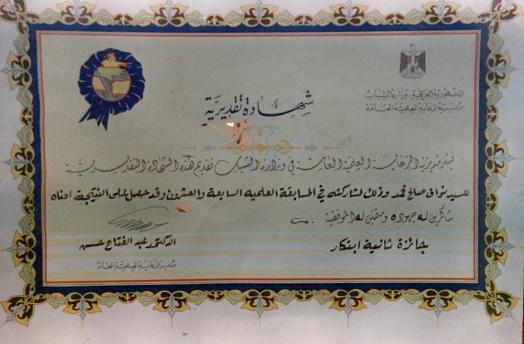 الجمهورية العراقية - وزارة الشباب
مديرية الرعاية العلمية العامة
شهادة تقديرية
يسر مديرية الرعاية العلمية العامة في وزارة الشباب تقديم هذه الشهادة التقديرية
للسيد نوافى صالح محمد وذلك لمشاركته في المسابقة العلمية السابعة والعشرون وقد حصل على النتيجة ادناه
شاكرين له جهوده ومتمنين له الموفقية
جائزة ثانية ابتكار
الدكتور عبد الفتاح حسن
مدير الرعاية العلمية العامة